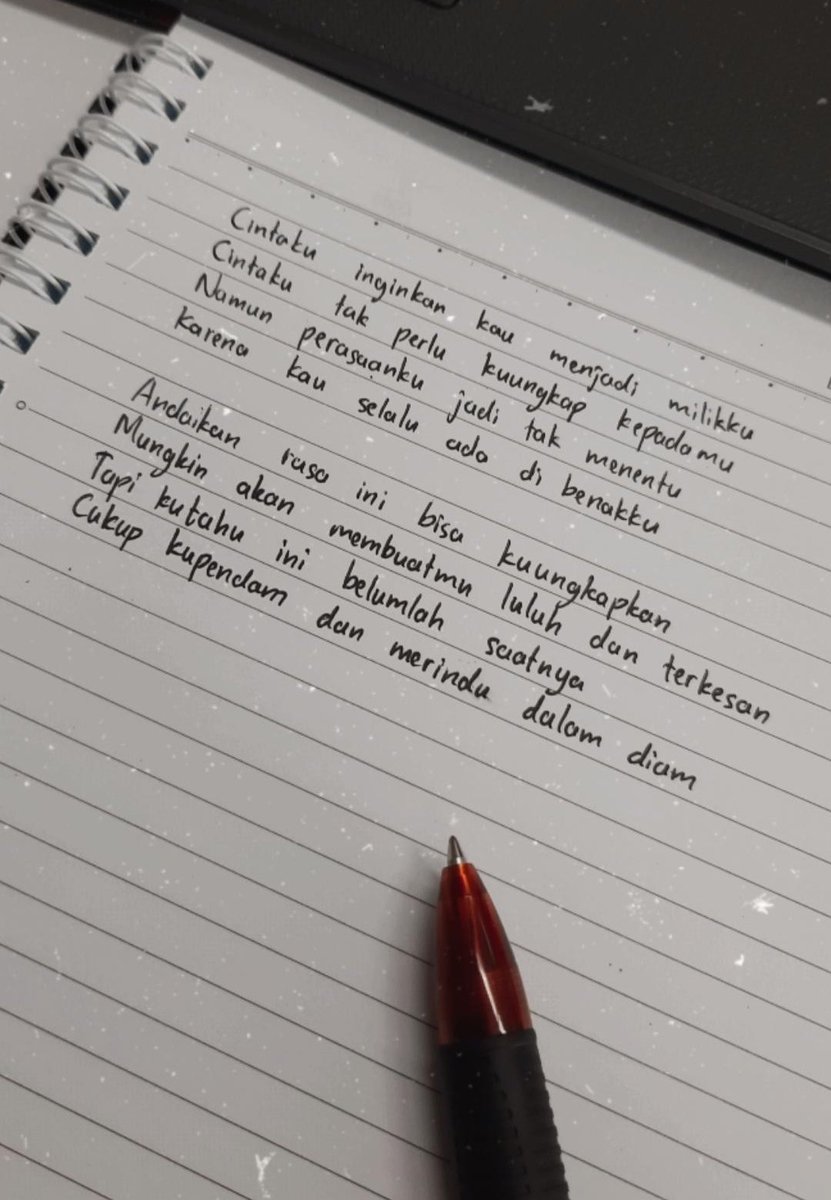 Cintaku inginkan kau menjadi milikku
Cintaku tak perlu kuungkap kepadamu
Namun perasaanku jadi tak menentu
Karena kau selalu ada di benakku
Andaikan rasa ini bisa kuungkapkan
Mungkin akan membuatmu luluh dan terkesan
Tapi kutahu ini belumlah saatnya
Cukup kupendam dan merindu dalam diam